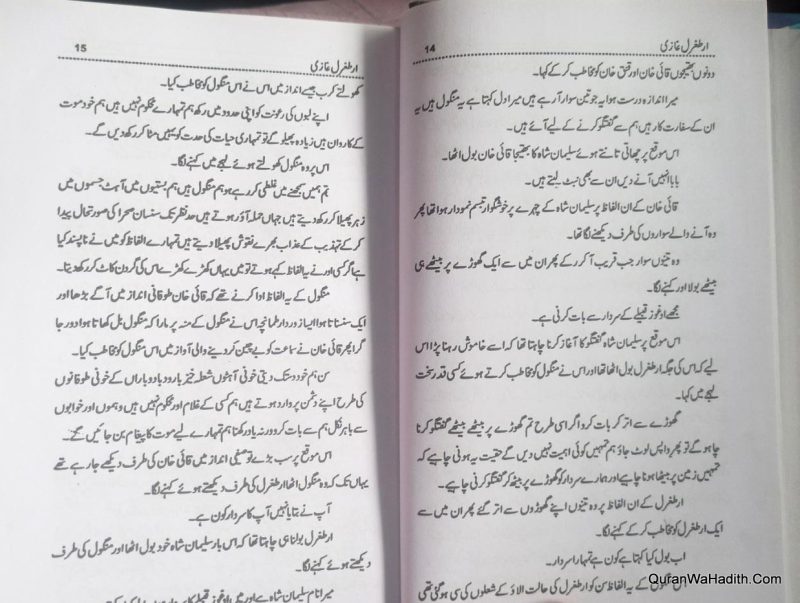 ارطغرل غازی
14
دونوں بھتیجوں قائی خان اور قتق خان کو مخاطب کر کے کہا۔
میرا اندازہ درست ہوا یہ جو تین سوار آ رہے ہیں میرا دل کہتا ہے یہ منگول ہیں یہ
ان کے سفارت کار ہیں ہم سے گفتگو کرنے کے لیے آئے ہیں۔
اس موقع پر چھاتی تانتے ہوئے سلیمان شاہ کا بھتیجا قائی خان بول اٹھا۔
بابا انہیں آنے دیں ان سے بھی نبٹ لیتے ہیں۔
قائی خان کے ان الفاظ پر سلیمان شاہ کے چہرے پر خوشگوار تبسم نمودار ہوا تھا پھر
وہ آنے والے سواروں کی طرف دیکھنے لگا تھا۔
وہ تینوں سوار جب قریب آ کر رکے پھر ان میں سے ایک گھوڑے پر بیٹھے ہی
بیٹھے بولا اور کہنے لگا۔
مجھے اوغوز قبیلے کے سردار سے بات کرنی ہے۔
اس موقع پر سلیمان شاہ گفتگو کا آغاز کرنا چاہتا تھا کہ اسے خاموش رہنا پڑا اس
لیے کہ اس کی جگہ ارطغرل بول اٹھا تھا اور اس نے منگول کو مخاطب کرتے ہوئے کسی قدر سخت
لہجے میں کہا۔
گھوڑے سے اتر کر بات کرو اگر اسی طرح تم گھوڑے پر بیٹھے بیٹھے گفتگو کرنا
چاہو گے تو پھر واپس لوٹ جاؤ ہم تمہیں کوئی اہمیت نہیں دیں گے حقیقت یہ ہونی چاہیے کہ
تمہیں زمین پر بیٹھا ہونا چاہیے اور ہمارے سردار کو گھوڑے پر بیٹھ کر گفتگو کرنی چاہیے۔
ارطغرل کے ان الفاظ پر وہ تینوں اپنے گھوڑوں سے اتر گئے پھر ان میں سے
ایک ارطغرل کو مخاطب کر کے کہنے لگا۔
اب بول کیا کہتا ہے کون ہے تمہارا سردار۔
منگول کے یہ الفاظ سن کر ارطغرل کی حالت الاؤ کے شعلوں کی سی ہو گئی تھی
ارطغرل غازی
15
کھولتے کرب جیسے انداز میں اس نے اس منگول کو مخاطب کیا۔
اپنے لبوں کی رعونت کو اپنی حدود میں رکھ ہم تمہارے محکوم نہیں ہیں ہم خود موت
کے کاروان ہیں زیادہ پھیلو گے تو تمہاری حیات کی حدت کو یہیں مٹا کر رکھ دیں گے۔
اس پر وہ منگول کھولتے ہوئے لہجے میں کہنے لگا۔
تم ہمیں سمجھنے میں غلطی کر رہے ہو ہم منگول ہیں ہم بستیوں میں آہٹ جسموں میں
زہر پھیلا کر رکھ دیتے ہیں جہاں حملہ آور ہوتے ہیں حد نظر تک سنسان صحرا کی صورتحال پیدا
کر کے تہذیب کے عذاب بھرے نقوش پھیلا دیتے ہیں تمہارے الفاظ کو میں نے ناپسند کیا
ہے اگر کسی اور نے یہ الفاظ کہے ہوتے تو میں یہاں کھڑے کھڑے اس کی گردن کاٹ کر رکھ دیتا۔
منگول کے یہ الفاظ ادا کرنے تھے کہ قائی خان طوفانی انداز میں آگے بڑھا اور
ایک سنسناتا ہوا ایسا زوردار طمانچہ اس نے منگول کے منہ پر مارا کہ منگول بل کھاتا ہوا دور جا
گرا پھر قائی خان نے سماعت کو بے چین کر دینے والی آواز میں اس منگول کو مخاطب کیا۔
سن ہم خود دستک دیتی خونی آہٹوں شعلہ خیز بارود باد و باراں کے خونی طوفانوں
کی طرح اپنے دشمن پر وارد ہوتے ہیں ہم کسی کے غلام اور محکوم نہیں ہیں وہموں اور خوابوں
سے باہر نکل ہم سے بات کرو ورنہ یاد رکھنا ہم تمہارے لیے موت کا پیغام بن جائیں گے۔
اس موقع پر سب بڑے توصیفی انداز میں قائی خان کی طرف دیکھے جا رہے تھے
یہاں تک کہ وہ منگول اٹھا ارطغرل کی طرف دیکھتے ہوئے کہنے لگا۔
آپ نے بتایا نہیں آپ کا سردار کون ہے۔
ارطغرل بولنا ہی چاہتا تھا کہ اس بار سلیمان شاہ خود بول اٹھا اور منگول کی طرف
دیکھتے ہوئے کہنے لگا۔
میرا نام سلیمان شاہ ہے اور میں اوغوز قبیلے کا سردار ہوں
QuranWaHadith.Com